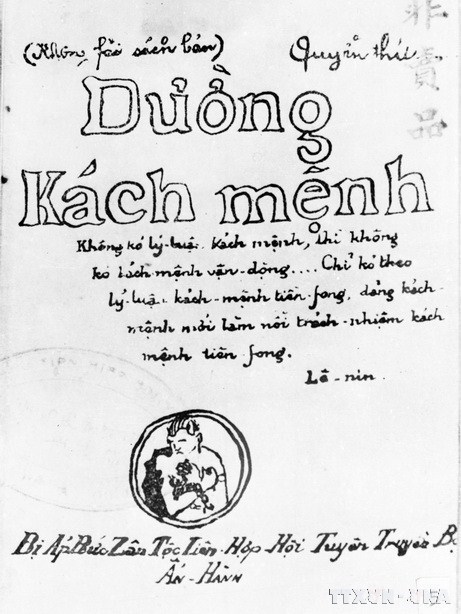 (Không fải sách bán) Quyển thứ
非賣品
Đường
Kách mệnh
Không kó lý-luận kách mệnh, thì không
kó kách mệnh vận-động.... Chỉ kó theo
lý-luận kách-mệnh tiền-fong, đảng kách-
mệnh mới làm nổi trách-nhiệm kách
mệnh tiền fong.
Lê-nin.
Bị Áp Bức Zân Tộc Liên-Hợp-Hội Tuyên Truyền Bộ
Ấn-Hành
TTXVN - CRA